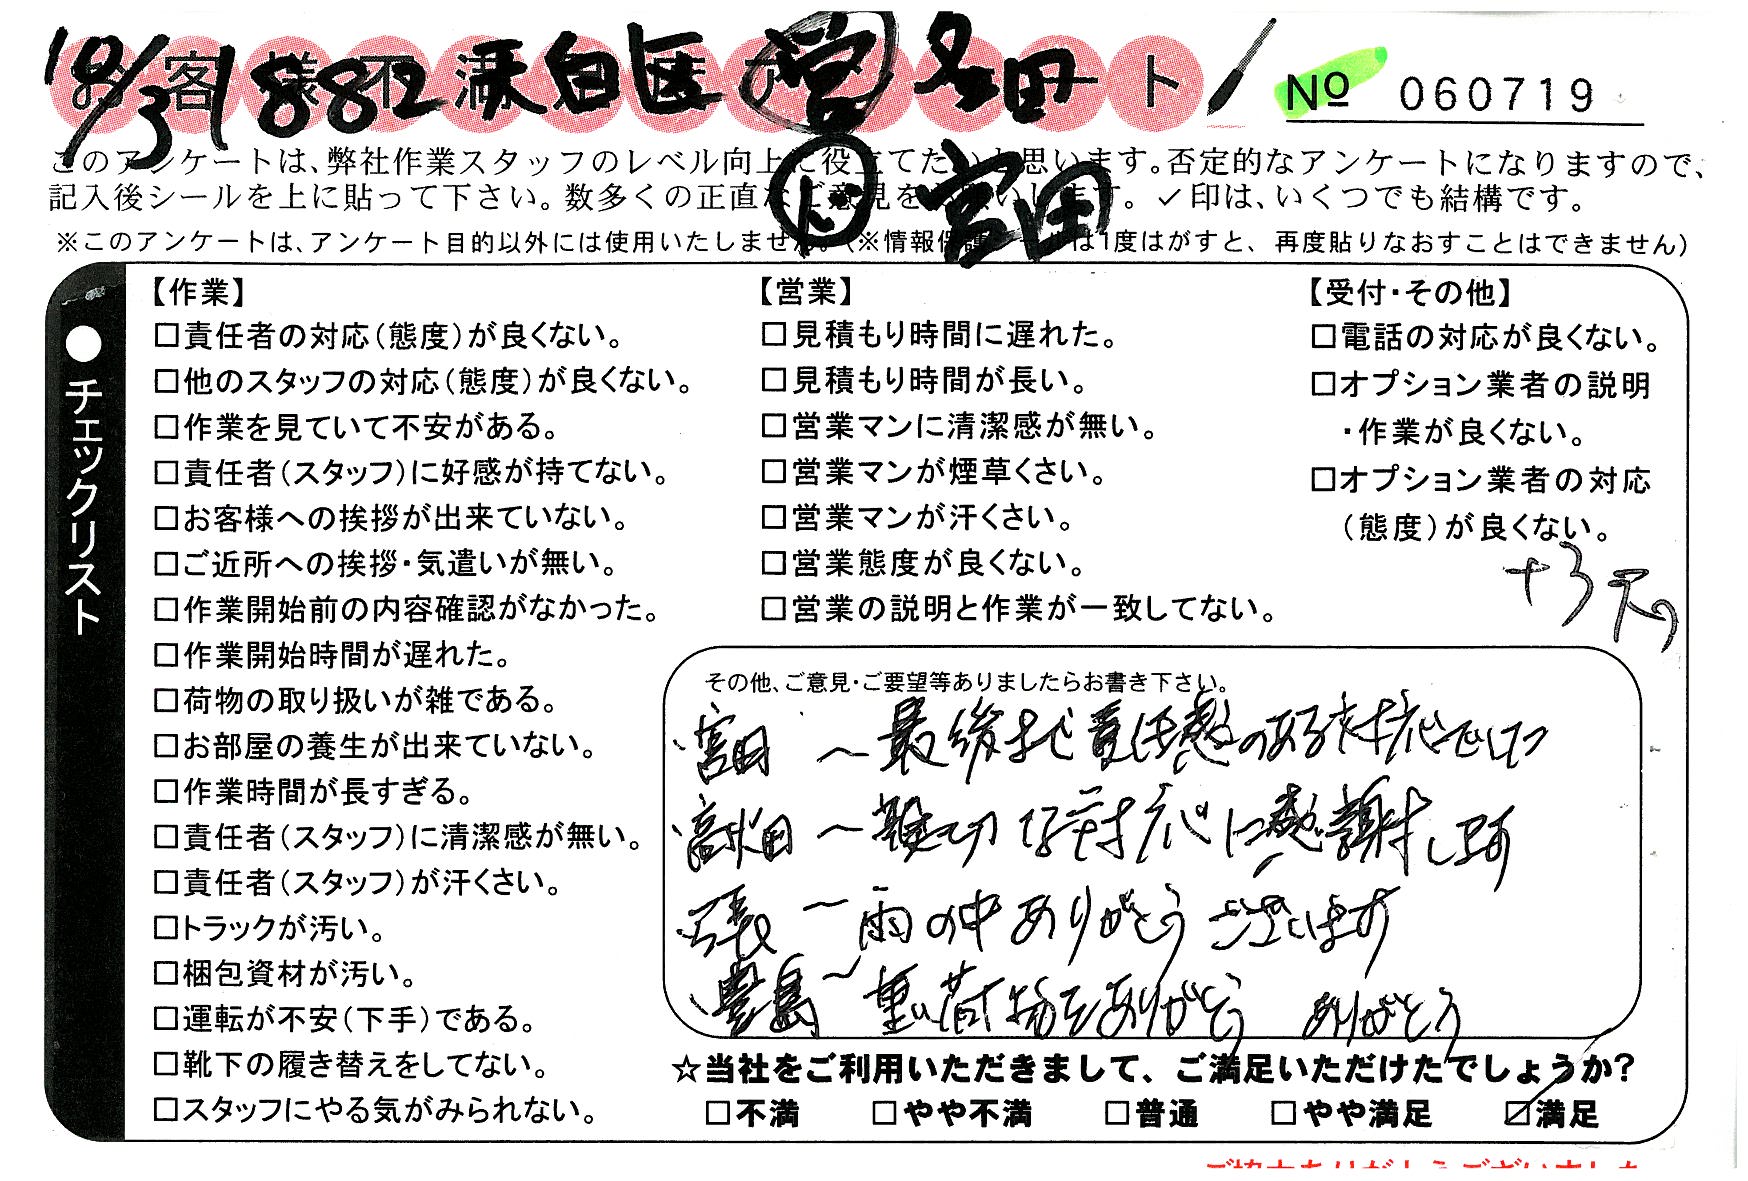 10/31 882 天白区 営 多田
お客様不満足度アンケート
No 060719
ト 宮田
このアンケートは、弊社作業スタッフのレベル向上に役立てたいと思います。否定的なアンケートになりますので、
記入後シールを上に貼って下さい。数多くの正直なご意見をお願いします。✓印は、いくつでも結構です。
※このアンケートは、アンケート目的以外には使用いたしません。(※情報保護シールは1度はがすと、再度貼りなおすことはできません)
●チェックリスト
【作業】
□責任者の対応(態度)が良くない。
□他のスタッフの対応(態度)が良くない。
□作業を見ていて不安がある。
□責任者(スタッフ)に好感が持てない。
□お客様への挨拶が出来ていない。
□ご近所への挨拶・気遣いが無い。
□作業開始前の内容確認がなかった。
□作業開始時間が遅れた。
□荷物の取り扱いが雑である。
□お部屋の養生が出来ていない。
□作業時間が長すぎる。
□責任者(スタッフ)に清潔感が無い。
□責任者(スタッフ)が汗くさい。
□トラックが汚い。
□梱包資材が汚い。
□運転が不安(下手)である。
□靴下の履き替えをしてない。
□スタッフにやる気がみられない。
【営業】
□見積もり時間に遅れた。
□見積もり時間が長い。
□営業マンに清潔感が無い。
□営業マンが煙草くさい。
□営業マンが汗くさい。
□営業態度が良くない。
□営業の説明と作業が一致してない。
【受付・その他】
□電話の対応が良くない。
□オプション業者の説明
・作業が良くない。
□オプション業者の対応
(態度)が良くない。
その他、ご意見・ご要望等ありましたらお書き下さい。
宮田 〜最後まで責任感のある対応でした
高畑〜親切な対応に感謝します
〜雨の中ありがとうございます
豊島〜重い荷物をありがとう ありがとう
☆当社をご利用いただきまして、ご満足いただけたでしょうか?
□不満 □やや不満 □普通 □やや満足 ☑満足
ご協力ありがとうございました